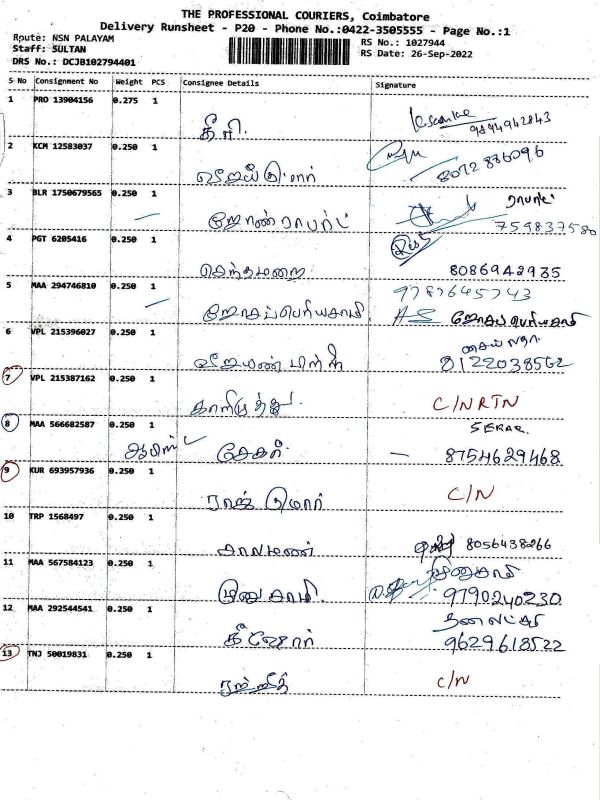 THE PROFESSIONAL COURIERS, Coimbatore
Delivery Runsheet - P20 - Phone No.:0422-3505555 - Page No.:1
Route: NSN PALAYAM
Staff: SULTAN
DRS No.: DCJB102794401
RS No.: 1027944
RS Date: 26-Sep-2022
S No Consignment No Weight PCS Consignee Details Signature
1 PRO 13904156 0.275 1
9894942843
2 KCM 12583037 0.250 1
8072 886096
விஜய் குமார்
3 BLR 1750679565 0.250 1
ராபர்ட்
ஜோண் ராபர்ட் 759837580
4 PGT 6205416 0.250 1
செந்தாமரை 8086942935
5 MAA 294746810 0.250 1
9787645743
ஜோசப் பெரியசாமி ஜோசப் பெரியசாமி
6 VPL 215396027 0.250 1
8122038562
7 VPL 215387162 0.250 1
காளிமுத்து C/N RTN
8 MAA 566682587 0.250 1
SEKAR
சேகர் - 8754629468
9 KUR 693957936 0.250 1
ராஜ் குமார் C/N
10 TRP 1568497 0.250 1
8056438266
11 MAA 567584123 0.250 1
முனுசாமி 9790240230
12 MAA 292544541 0.250 1
கிஷோர் 9629618522
13 TNJ 50019831 0.250 1
ரஞ்ஜித் C/N